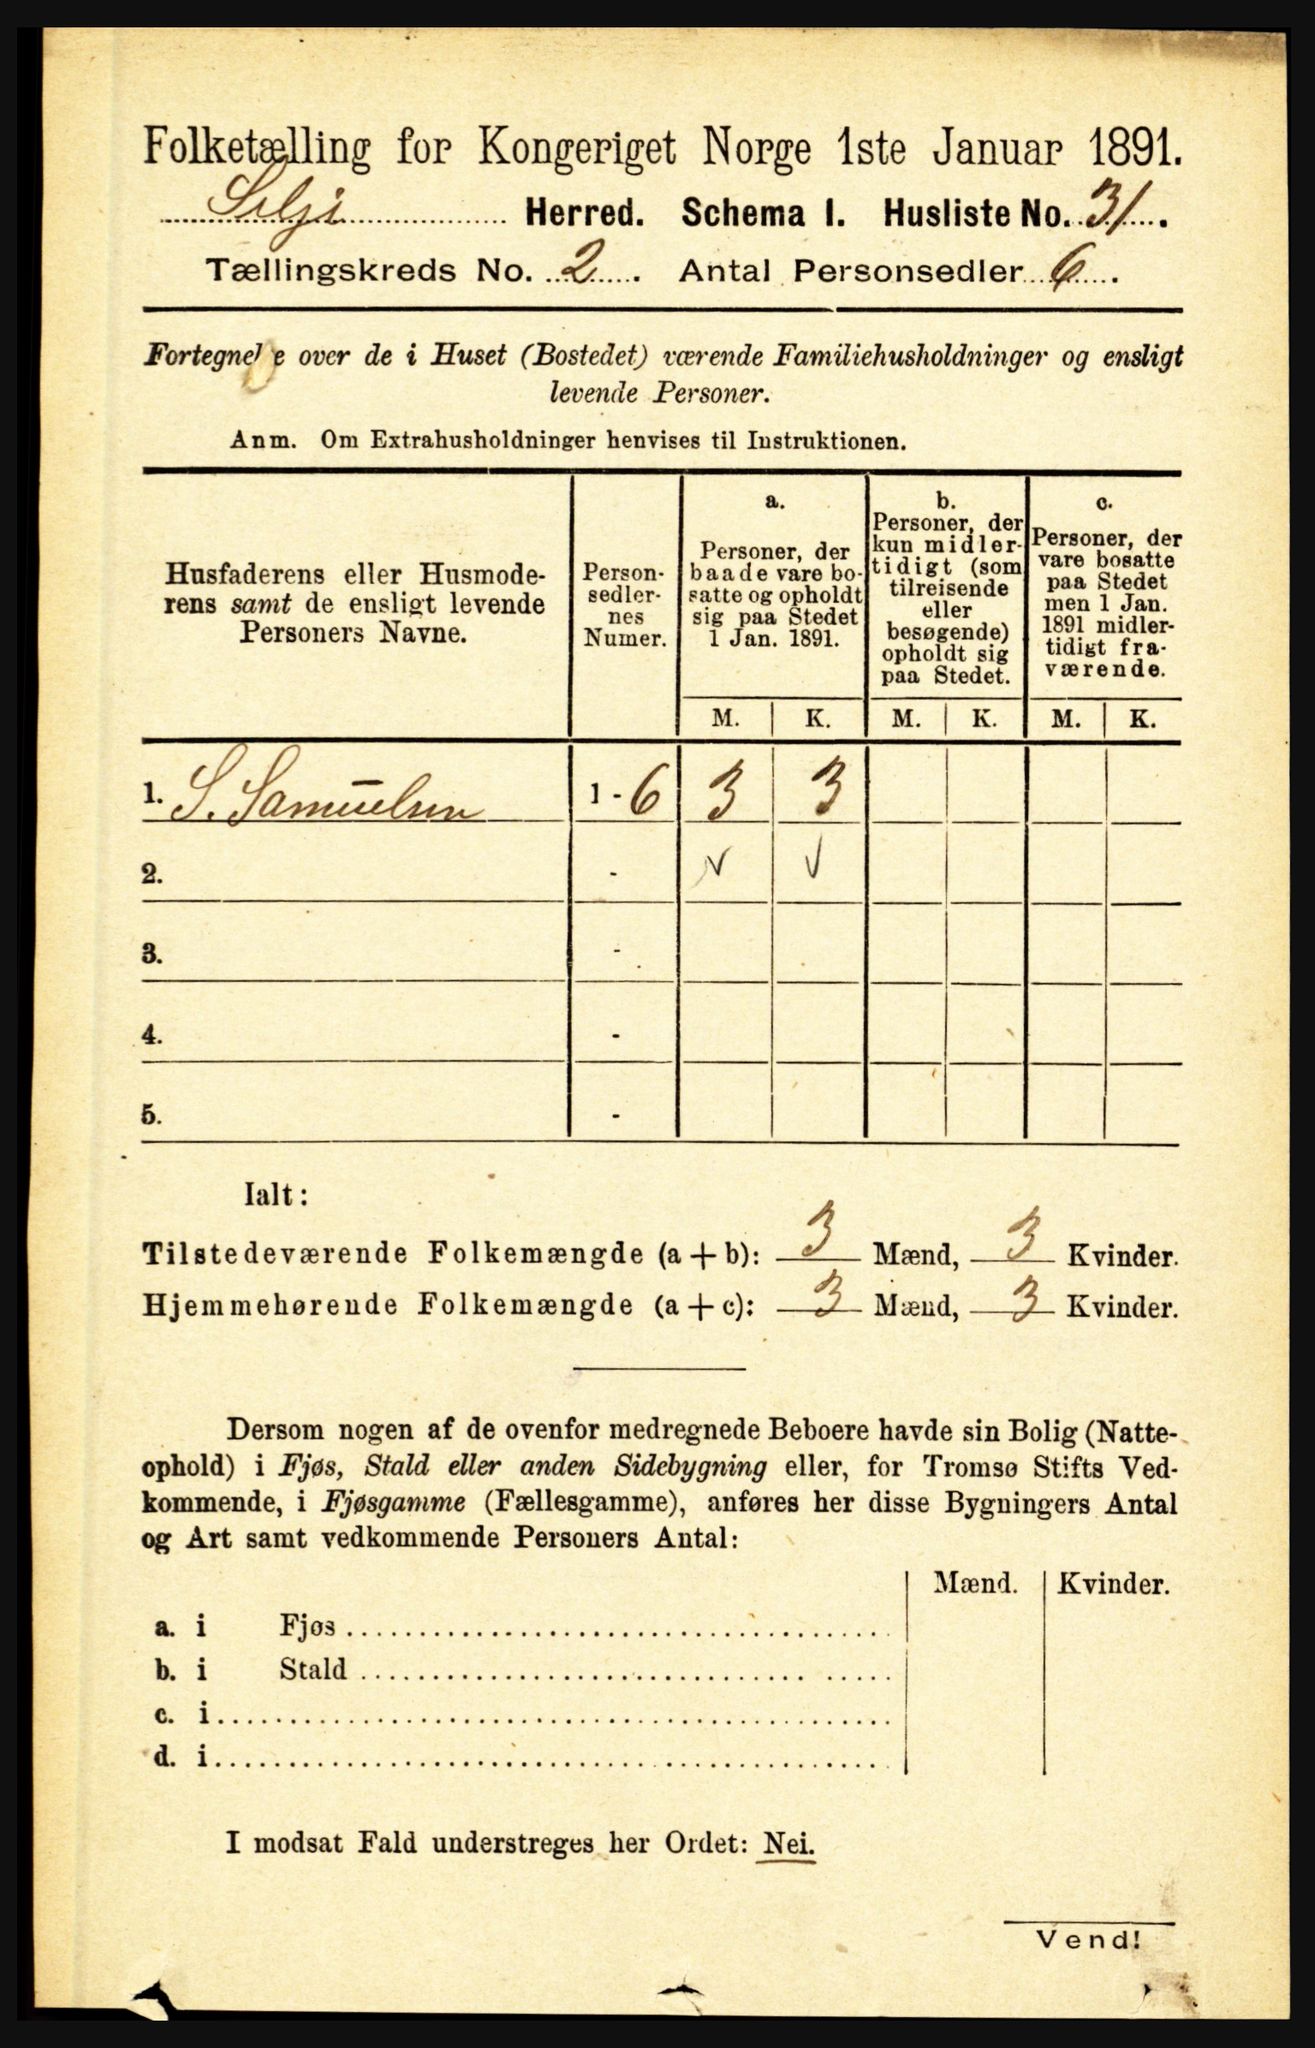 Folketælling for Kongeriget Norge 1ste Januar 1891.
Selje Herred. Schema I. Husliste No. 31.
Tællingskreds No. 2. Antal Personsedler 6.
Fortegnelse over de i Huset (Bostedet) værende Familiehusholdninger og ensligt
levende Personer.
Anm. Om Extrahusholdninger henvises til Instruktionen.
Husfaderens eller Husmode-
rens samt de ensligt levende
Personers Navne.
Person-
sedler-
nes
Numer.
a.
Personer, der
baade vare bo-
satte og opholdt
sig paa Stedet
1 Jan. 1891.
b.
Personer, der
kun midler-
tidigt (som
tilreisende
eller
besøgende)
opholdt sig
paa Stedet.
c.
Personer, der
vare bosatte
paa Stedet
men 1 Jan.
1891 midler-
tidigt fra-
værende.
M. K. M. K. M. K.
1. S. Samuelsen 1 - 6 3 3
2. - √ √
3. -
4. -
5. -
Ialt:
Tilstedeværende Folkemængde (a + b): 3 Mænd, 3 Kvinder.
Hjemmehørende Folkemængde (a + c): 3 Mænd, 3 Kvinder.
Dersom nogen af de ovenfor medregnede Beboere havde sin Bolig (Natte-
ophold) i Fjøs, Stald eller anden Sidebygning eller, for Tromsø Stifts Ved-
kommende, i Fjøsgamme (Fællesgamme), anføres her disse Bygningers Antal
og Art samt vedkommende Personers Antal:
Mænd. Kvinder.
a. i Fjøs
b. i Stald
c. i
d. i
I modsat Fald understreges her Ordet: Nei.
Vend!